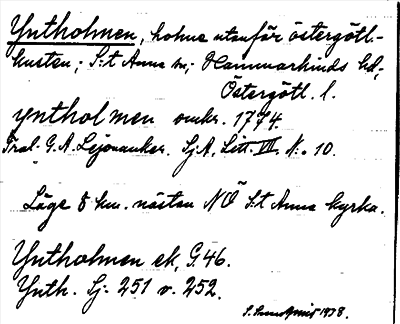 Yntholmen, holme utanför östergötl-
kusten; S:t Anna sn; Hammarkinds hd;
Östergötl. l.
yntholmen omkr. 1774.
Tral. G. A. Lejonanker. Sj A, Litt. VIII, N:o 10.
Läge 8 km. nästan NÖ S:t Anna kyrka.
Yntholmen ek, G. 46.
Ynth. Sj. 251 o. 252.
1938.